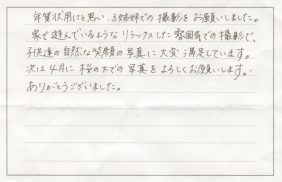 年賀状用にと思い、3姉妹での撮影をお願いしました。
家で遊んでいるようなリラックスした雰囲気での撮影で、
子供達の自然な笑顔の写真に大変満足しています。
次は4月に桜の木下での写真をよろしくお願いします。
ありがとうございました。